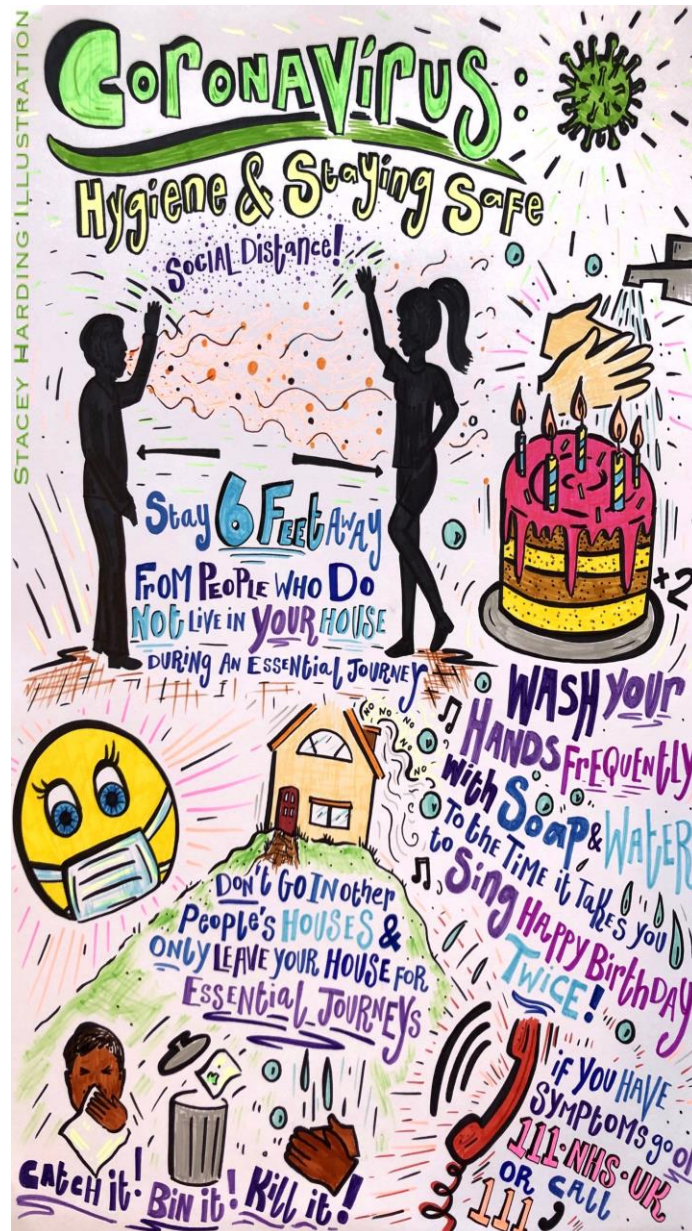 STACEY HARDING ILLUSTRATION
CORONAVIRUS:
Hygiene & Staying Safe
SOCIAL Distance!
Stay 6 FEET AWAY
FROM PEOPLE WHO DO
NOT LIVE IN YOUR HOUSE
DURING AN ESSENTIAL JOURNEY
×2
WASH YOUR
HANDS FREQUENTLY
with Soap & WATER
To the TIME it TAKES you
to Sing HAPPY BirthDAY
TWICE!
NO NO NO NO NO NO
DON'T GO IN other
People's HOUSES &
ONLY LEAVE YOUR HOUSE FOR
ESSENtial JOURNEYS
CATCH it! Bin it! Kill it!
if you HAVE
SYMPTOMS go on
111·NHS·UK
OR CALL
111